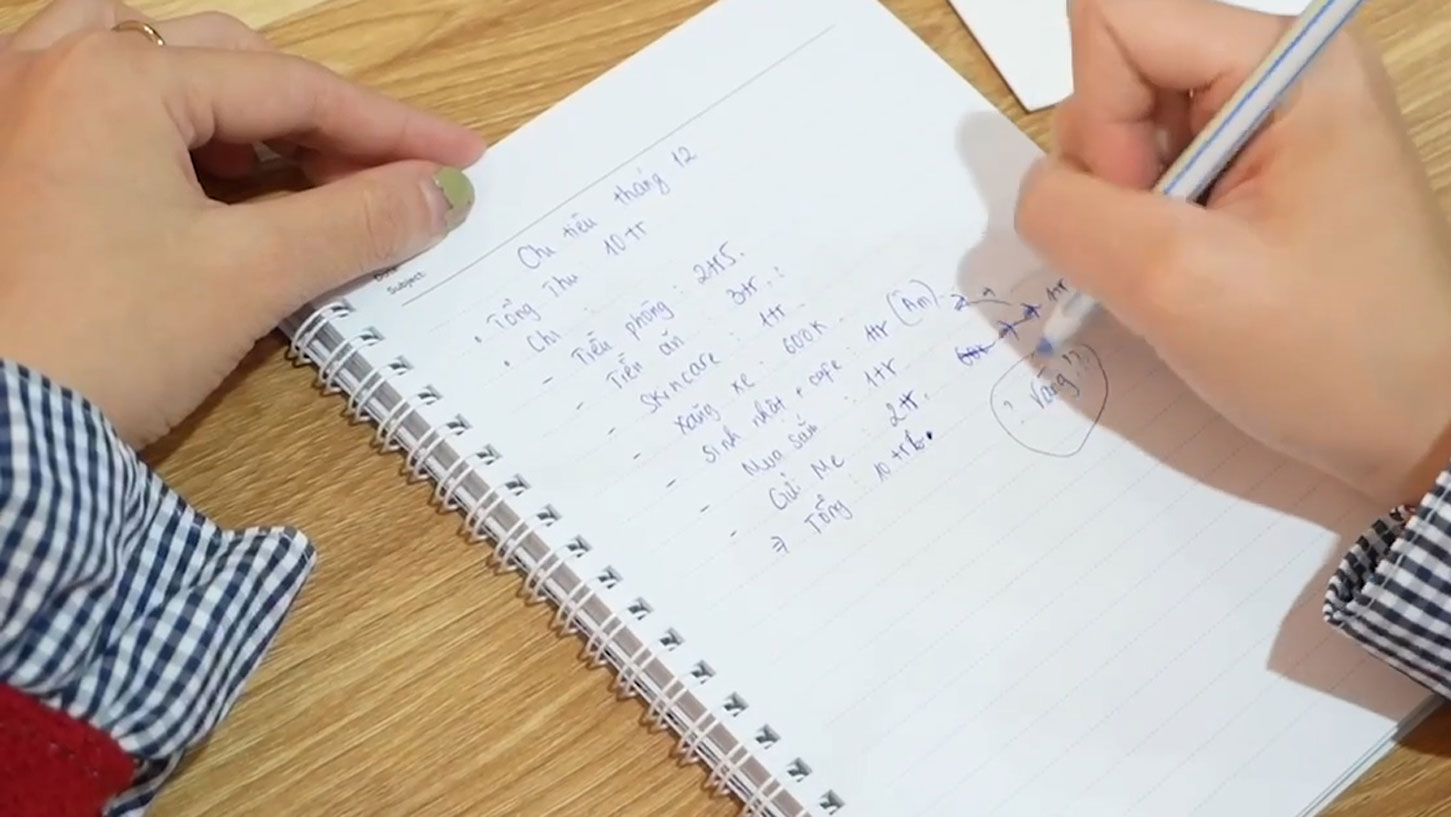 Date
Subject:
Chi tiêu tháng 12
• Tổng Thu : 10 tr
• Chi :
- Tiền phòng : 2tr5.
- Tiền ăn : 3tr.
- Skincare : 1tr
- Xăng xe : 600K
- Sinh nhật + cafe : 1tr (Âm)
- Mua sắm : 1tr
- Gửi Mẹ : 2tr.
=> Tổng : 10 tr
1tr
? Vàng ??